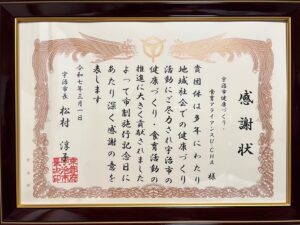 感謝状
宇治市健康づくり・
食育アライアンスU-CHA 様
貴団体は多年にわたり
地域社会での健康づくり
活動にご尽力され宇治市の
健康づくり・食育活動の
推進に大きく貢献されました
よって市制施行記念日に
あたり深く感謝の意を
表します
令和七年三月一日
宇治市長 松村 淳子